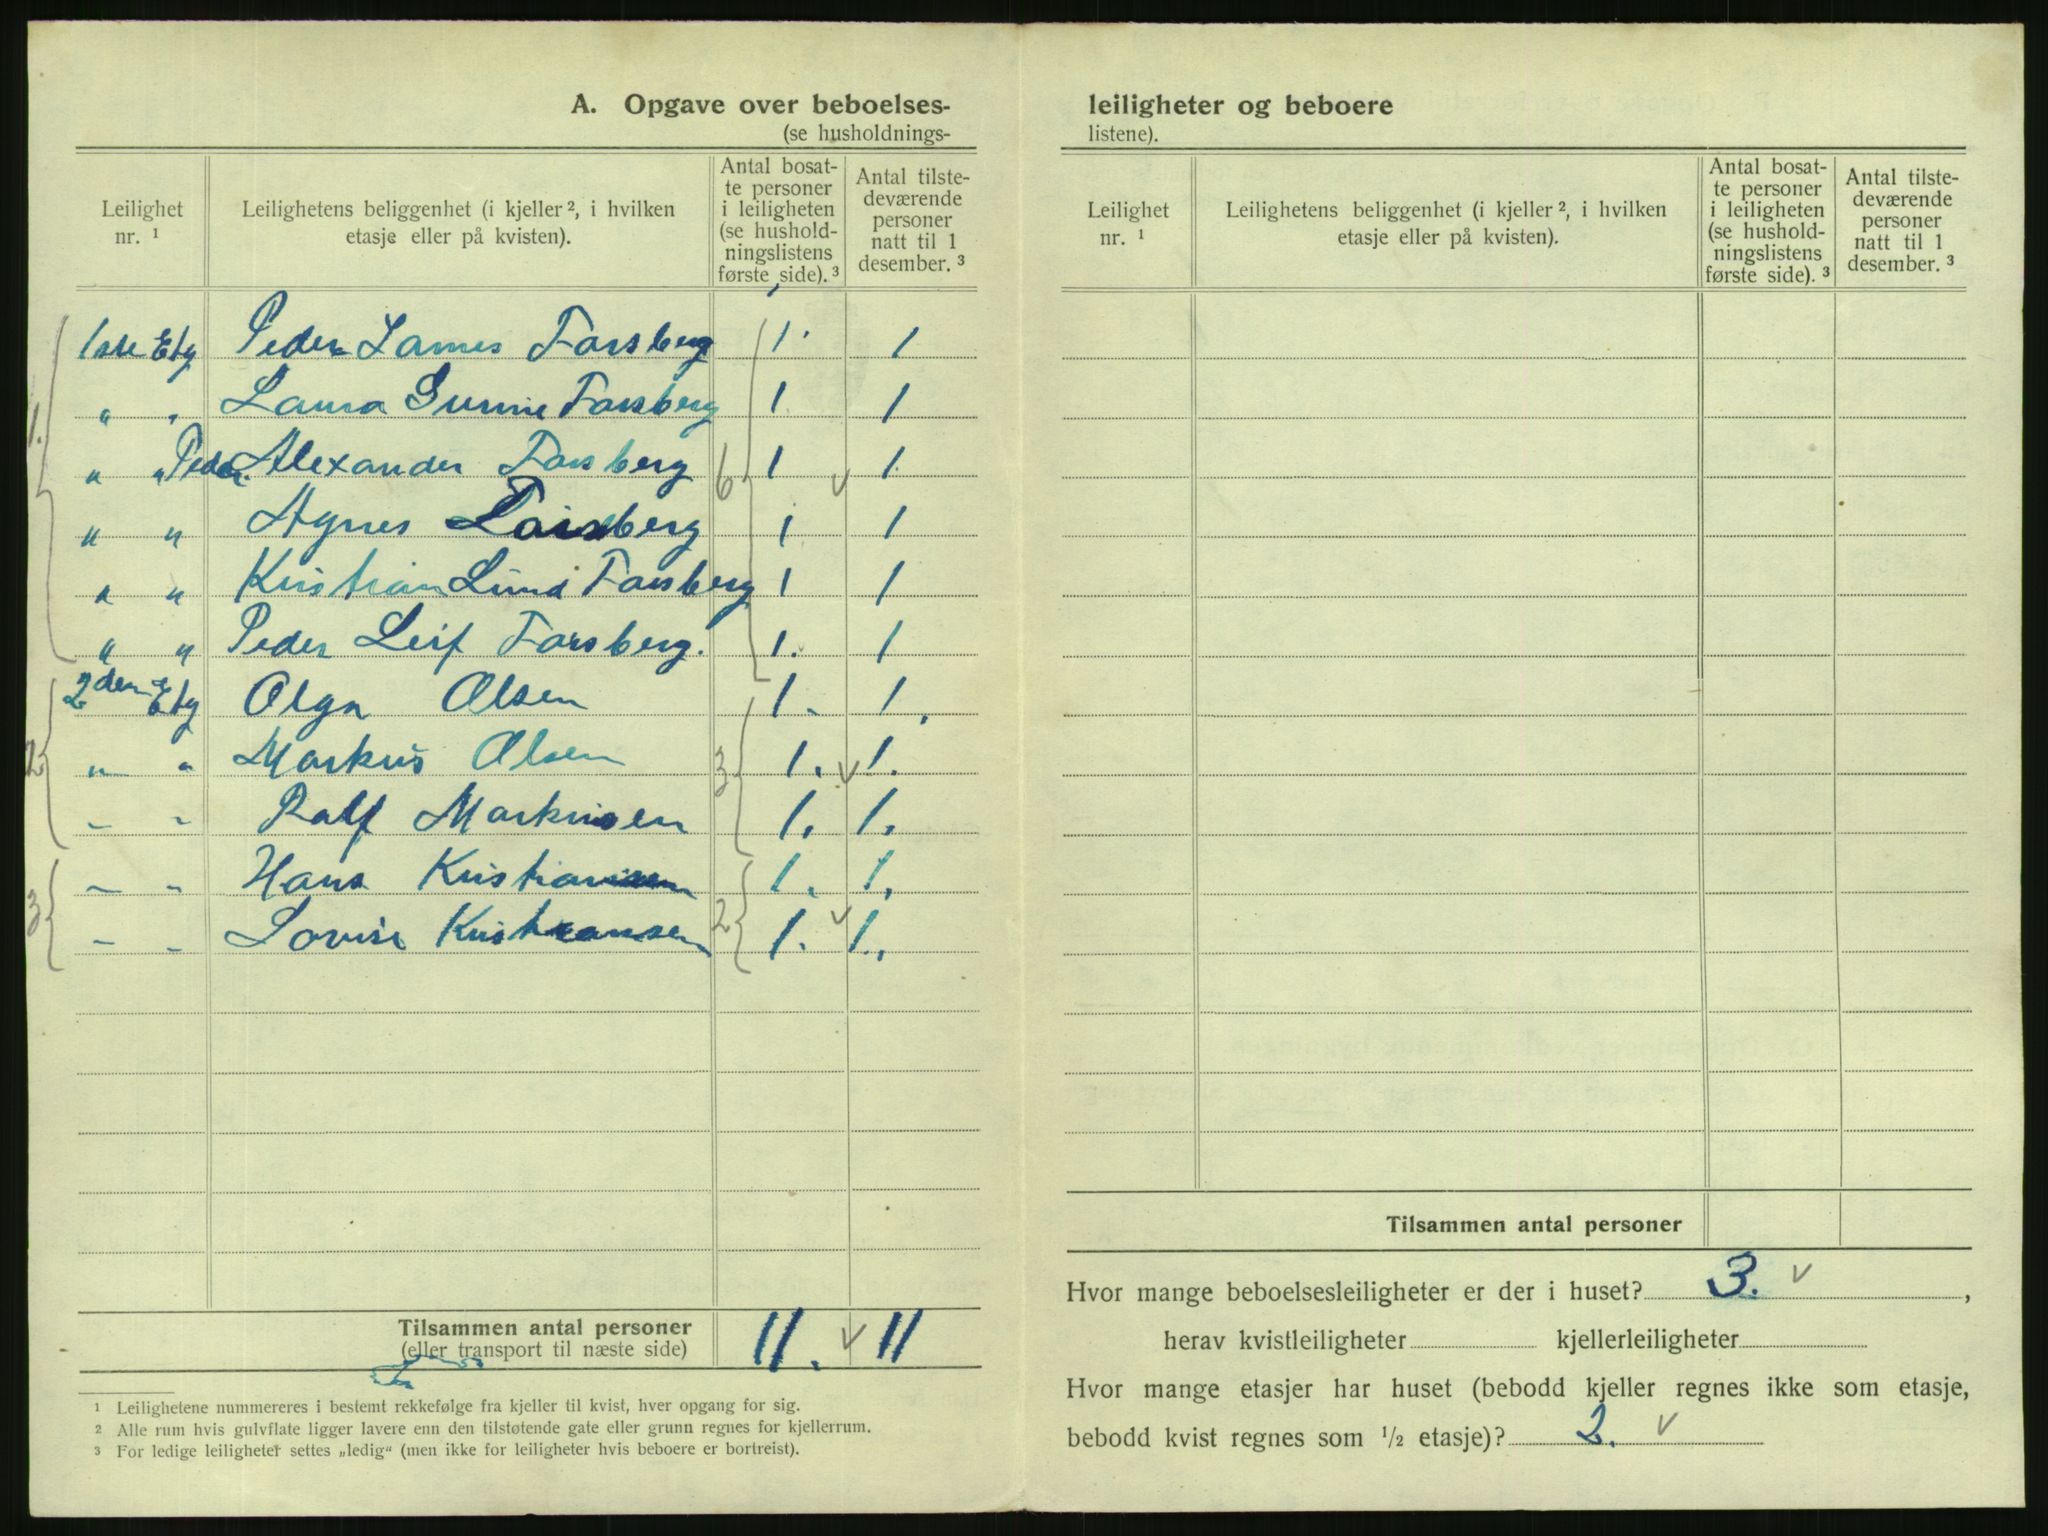 A. Opgave over beboelses-
(se husholdnings-
Leilighet nr. ¹
Leilighetens beliggenhet (i kjeller ², i hvilken etasje eller på kvisten).
Antal bosat-
te personer
i leiligheten
(se hushold-
ningslistens
første side). ³
Antal tilste-
deværende
personer
natt til 1
desember. ³
1. 1ste Etg Peder Lornes Forsberg 1. 1
" " Laura Gunnie Forsberg 1. 1
" " Peder Alexander Forsberg 6 1 v 1.
" " Agnes Forsberg 1 1
" " Kristian Lund Forsberg 1 1
" " Peder Leif Forsberg. 1. 1
2den Etg Olga Olsen 1. 1.
2 " " Markus Olsen 3 1. v 1.
- - Ralf Markusen 1. 1.
- - Hans Kristiansen 1. 1.
3 - - Lovise Kristiansen 2 1. v 1.
Tilsammen antal personer 11. v 11
(eller transport til næste side)
¹ Leilighetene nummereres i bestemt rekkefølge fra kjeller til kvist, hver opgang for sig.
² Alle rum hvis gulvflate ligger lavere enn den tilstøtende gate eller grunn regnes for kjellerrum.
³ For ledige leiligheter settes „ledig“ (men ikke for leiligheter hvis beboere er bortreist).
leiligheter og beboere
listene).
Leilighet nr. ¹
Leilighetens beliggenhet (i kjeller ², i hvilken etasje eller på kvisten).
Antal bosat-
te personer
i leiligheten
(se hushold-
ningslistens
første side). ³
Antal tilste-
deværende
personer
natt til 1
desember. ³
Tilsammen antal personer
Hvor mange beboelsesleiligheter er der i huset? 3. v ,
herav kvistleiligheter kjellerleiligheter
Hvor mange etasjer har huset (bebodd kjeller regnes ikke som etasje,
bebodd kvist regnes som ½ etasje)? 2. v